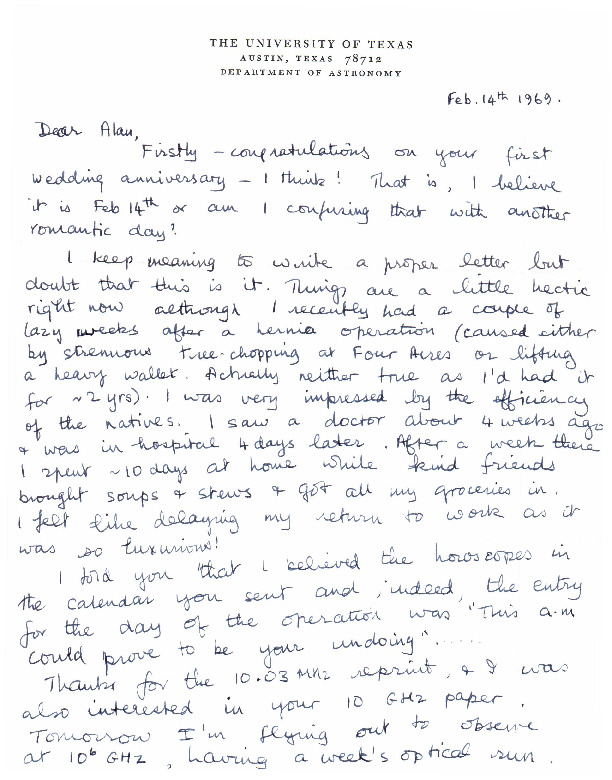 THE UNIVERSITY OF TEXAS
AUSTIN, TEXAS 78712
DEPARTMENT OF ASTRONOMY
Feb. 14th 1969.
Dear Alan,
Firstly – congratulations on your first
wedding anniversary – I think! That is, I believe
it is Feb 14th or am I confusing that with another
romantic day?
I keep meaning to write a proper letter but
doubt that this is it. Things are a little hectic
right now although I recently had a couple of
lazy weeks after a hernia operation (caused either
by strenuous tree-chopping at Four Acres or lifting
a heavy wallet. Actually neither true as I'd had it
for ~2 yrs). I was very impressed by the efficiency
of the natives. I saw a doctor about 4 weeks ago
& was in hospital 4 days later. After a week there
I spent ~10 days at home while kind friends
brought soups & stews & got all my groceries in.
I felt like delaying my return to work as it
was so luxurious!
I told you that I believed the horoscopes in
the calendar you sent and, indeed, the entry
for the day of the operation was "This a.m
could prove to be your undoing"......
Thanks for the 10.03 MHz reprint, & I was
also interested in your 10 GHz paper.
Tomorrow I'm flying out to observe
at 10⁶ GHz, having a week's optical run.